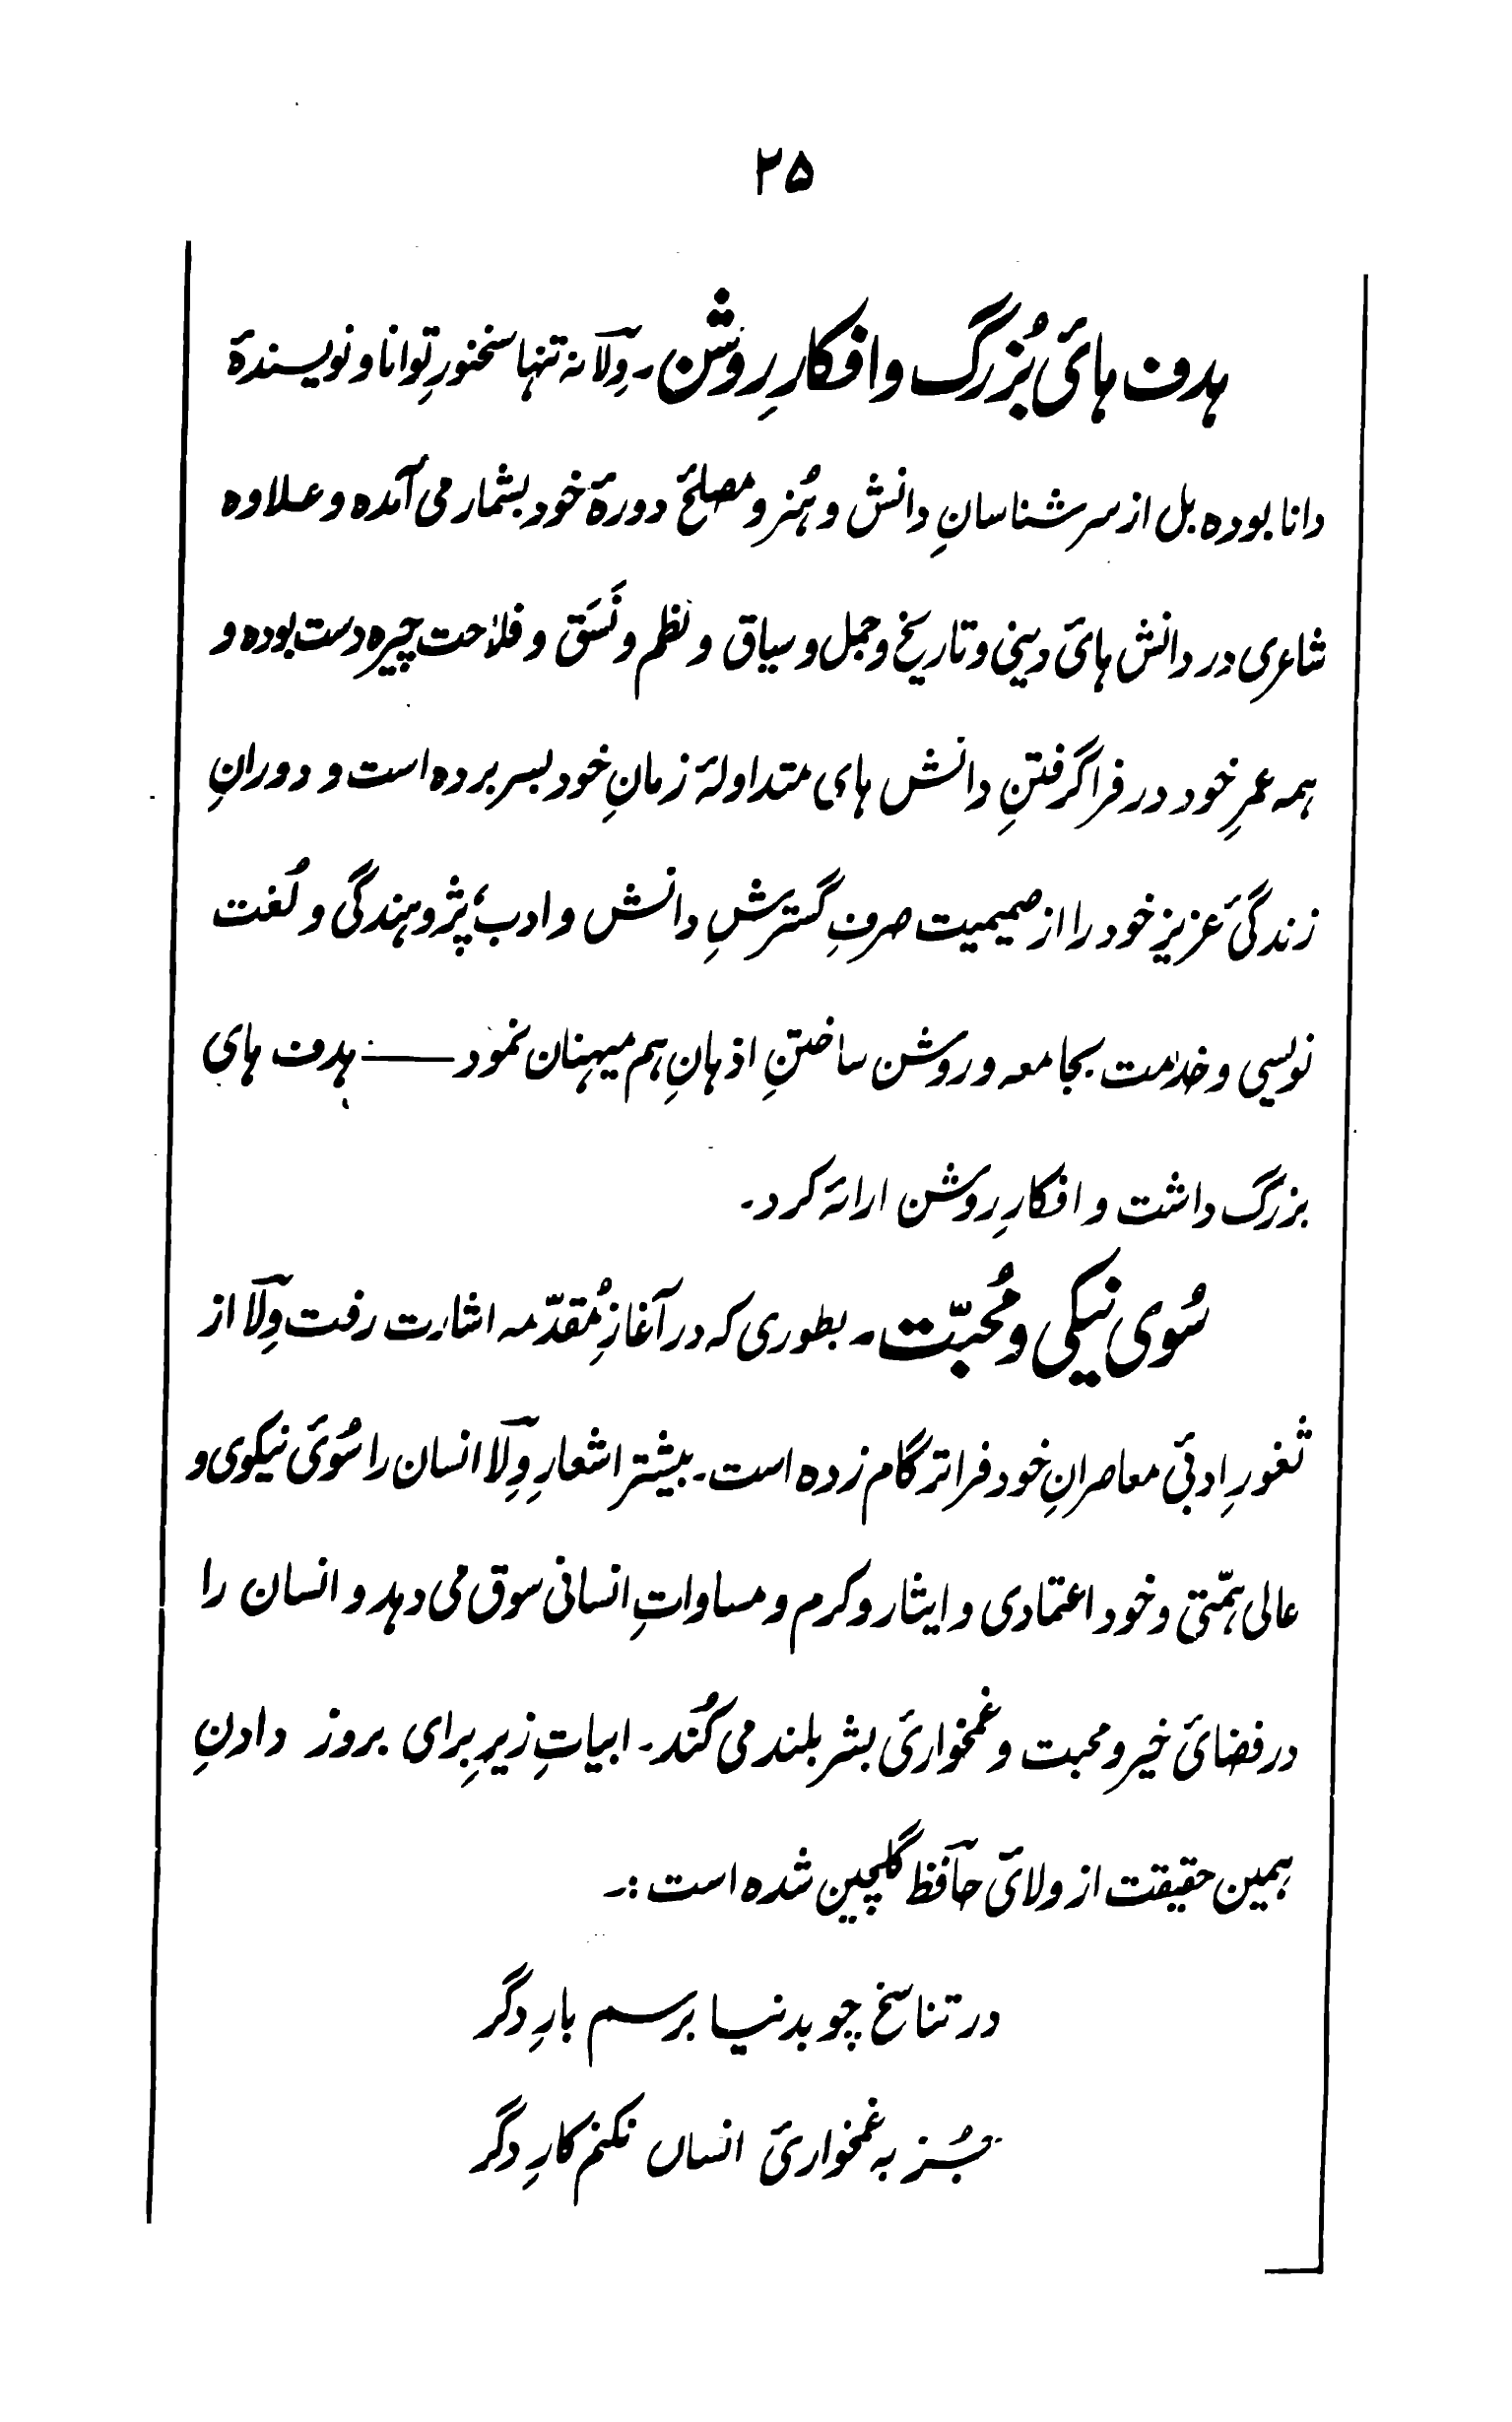 ۲۵
ہدف ہائ بُزرگ و افکارِ روشن۔ وِلآ نہ تنہا سخنورِ توانا و نویسندۂ
دانا بوده بل از سرشناسانِ دانش و ہُنر و مصلحِ دورۂ خود بشمار می آمده و علاوه
شاعری در دانش ہائ دینی و تاریخ و جمل و سیاق و نظم و نَسَق و فلاحت چیره دست بوده و
ہمہ عمرِ خود در فرا گرفتنِ دانش ہای متداولۂ زمانِ خود بسر برده است و دورانِ
زندگئ عزیز خود را از صمیمیت صرفِ گسترشِ دانش و ادب، پژوہندگی و لُغت
نویسی و خدمت بجامعہ و روشن ساختنِ اذہانِ ہم میہنان نمود ــــ ہدف ہای
بزرگ داشت و افکارِ روشن ارائہ کرد۔
سُوی نیکی و مُحبّت۔ بطوری کہ در آغازِ مُقدّمہ اشارت رفت وِلآ از
ثغورِ ادبئ معاصرانِ خود فراتر گام زده است۔ بیشتر اشعارِ وِلآ انسان را سُوئ نیکوی و
عالی ہمّتی و خود اعتمادی و ایثار و کرم و مساواتِ انسانی سوق می دہد و انسان را
در فضائ خیر و محبت و غمخوارئ بشر بلند می کُند۔ ابیاتِ زیرِ برای بروز دادنِ
ہمین حقیقت از ولائ حآفظ گلچین شده است :۔
در تناسخ چو بدنیا برسم بارِ دگر
جُز بہ غمخوارئ انساں نکنم کارِ دگر